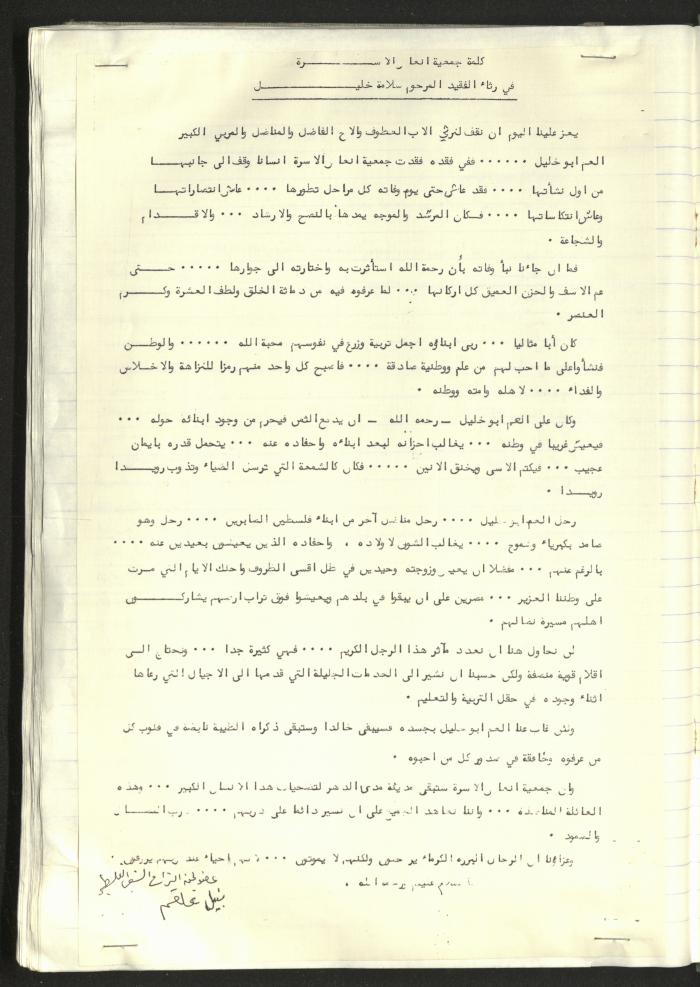 كلمة جمعية انعاش الاسرة
في رثاء الفقيد المرحوم سلامة خليل
يعز علينا اليوم ان نقف لنرثي الاب العطوف والاخ الفاضل والمناضل والمربي الكبير
العم ابو خليل ٠٠٠٠٠٠ ففي فقده فقدت جمعية انعاش الاسرة انسانا وقف الى جانبها
من اول نشأتها ٠٠٠٠ فقد عاش حتى يوم وفاته كل مراحل تطورها ٠٠٠٠ عاش انتصاراتها
وعاش انتكاساتها ٠٠٠٠ فكان المرشد والموجه يمدها بالنصح والارشاد ٠٠٠ والاقدام
والشجاعة ٠
فما ان جاءنا نبأ وفاته بأن رحمة الله استأثرت به واختارته الى جوارها ٠٠٠٠٠ حتى
عم الاسف والحزن العميق كل اركانها ٠٠٠ لما عرفوه فيه من دماثة الخلق ولطف العشرة وكرم
العنصر ٠
كان أبا مثاليا ٠٠٠ ربى ابناؤه اجمل تربية وزرع في نفوسهم محبة الله ٠٠٠٠٠٠ والوطن
فنشأوا على ما احب لهم من علم ووطنية صادقة ٠٠٠٠ فاصبح كل واحد منهم رمزا للنزاهة والاخلاص
والفداء ٠٠٠٠ لاهله وامته ووطنه ٠
وكان على العم ابو خليل - رحمه الله - ان يدفع الثمن فيحرم من وجود ابنائه حوله ٠٠٠
فيعيش غريبا في وطنه ٠٠٠ يغالب احزانه لبعد ابناءه واحفاده عنه ٠٠٠ يتحمل قدره بايمان
عجيب ٠٠٠ فيكتم الاسى ويخنق الانين ٠٠٠٠٠ فكان كالشمعة التي ترسل الضياء وتذوب رويدا
رويدا ٠
رحل العم ابو خليل ٠٠٠٠ رحل مناضل آخر من ابناء فلسطين الصابرين ٠٠٠٠ رحل وهو
صامد بكبرياء وشموخ ٠٠٠٠ يغالب الشوق لاولاده ، واحفاده الذين يعيشون بعيدين عنه ٠٠٠٠
بالرغم عنهم ٠٠٠ مفضلا ان يعيش وزوجته وحيدين في ظل اقسى الظروف واحلك الايام التي مرت
على وطننا العزيز ٠٠٠ مصرين على ان يبقوا في بلدهم ويعيشوا فوق تراب ارضهم يشاركون
اهلهم مسيرة نضالهم ٠
لن نحاول هنا ان نعدد مآثر هذا الرجل الكريم ٠٠٠٠ فهي كثيرة جدا ٠٠٠ ونحتاج الى
اقلام قوية منصفة ولكن حسبنا ان نشير الى الخدمات الجليلة التي قدمها الى الاجيال التي رعاها
اثناء وجوده في حقل التربية والتعليم ٠
ولئن غاب عنا العم ابو خليل بجسده فسيبقى خالدا وستبقى ذكراه الطيبة نابضة في قلوب كل
من عرفوه وخافقة في صدور كل من احبوه ٠
وان جمعية انعاش الاسرة ستبقى مدينة مدى الدهر لتضحيات هذا الانسان الكبير ٠٠٠ وهذه
العائلة المناضلة ٠٠٠ واننا نعاهد الجميع على ان نسير دائما على دربهم ٠٠٠٠ درب النضال
والصمود ٠
وعزاؤنا ان الرجال البررة الكرماء يرحلون ولكنهم لا يموتون ٠٠٠ احياء عند ربهم يرزقون ٠
والسلام عليكم ورحمة الله ٠
عضو لجنة التراث الشعبي
نبيل علقم